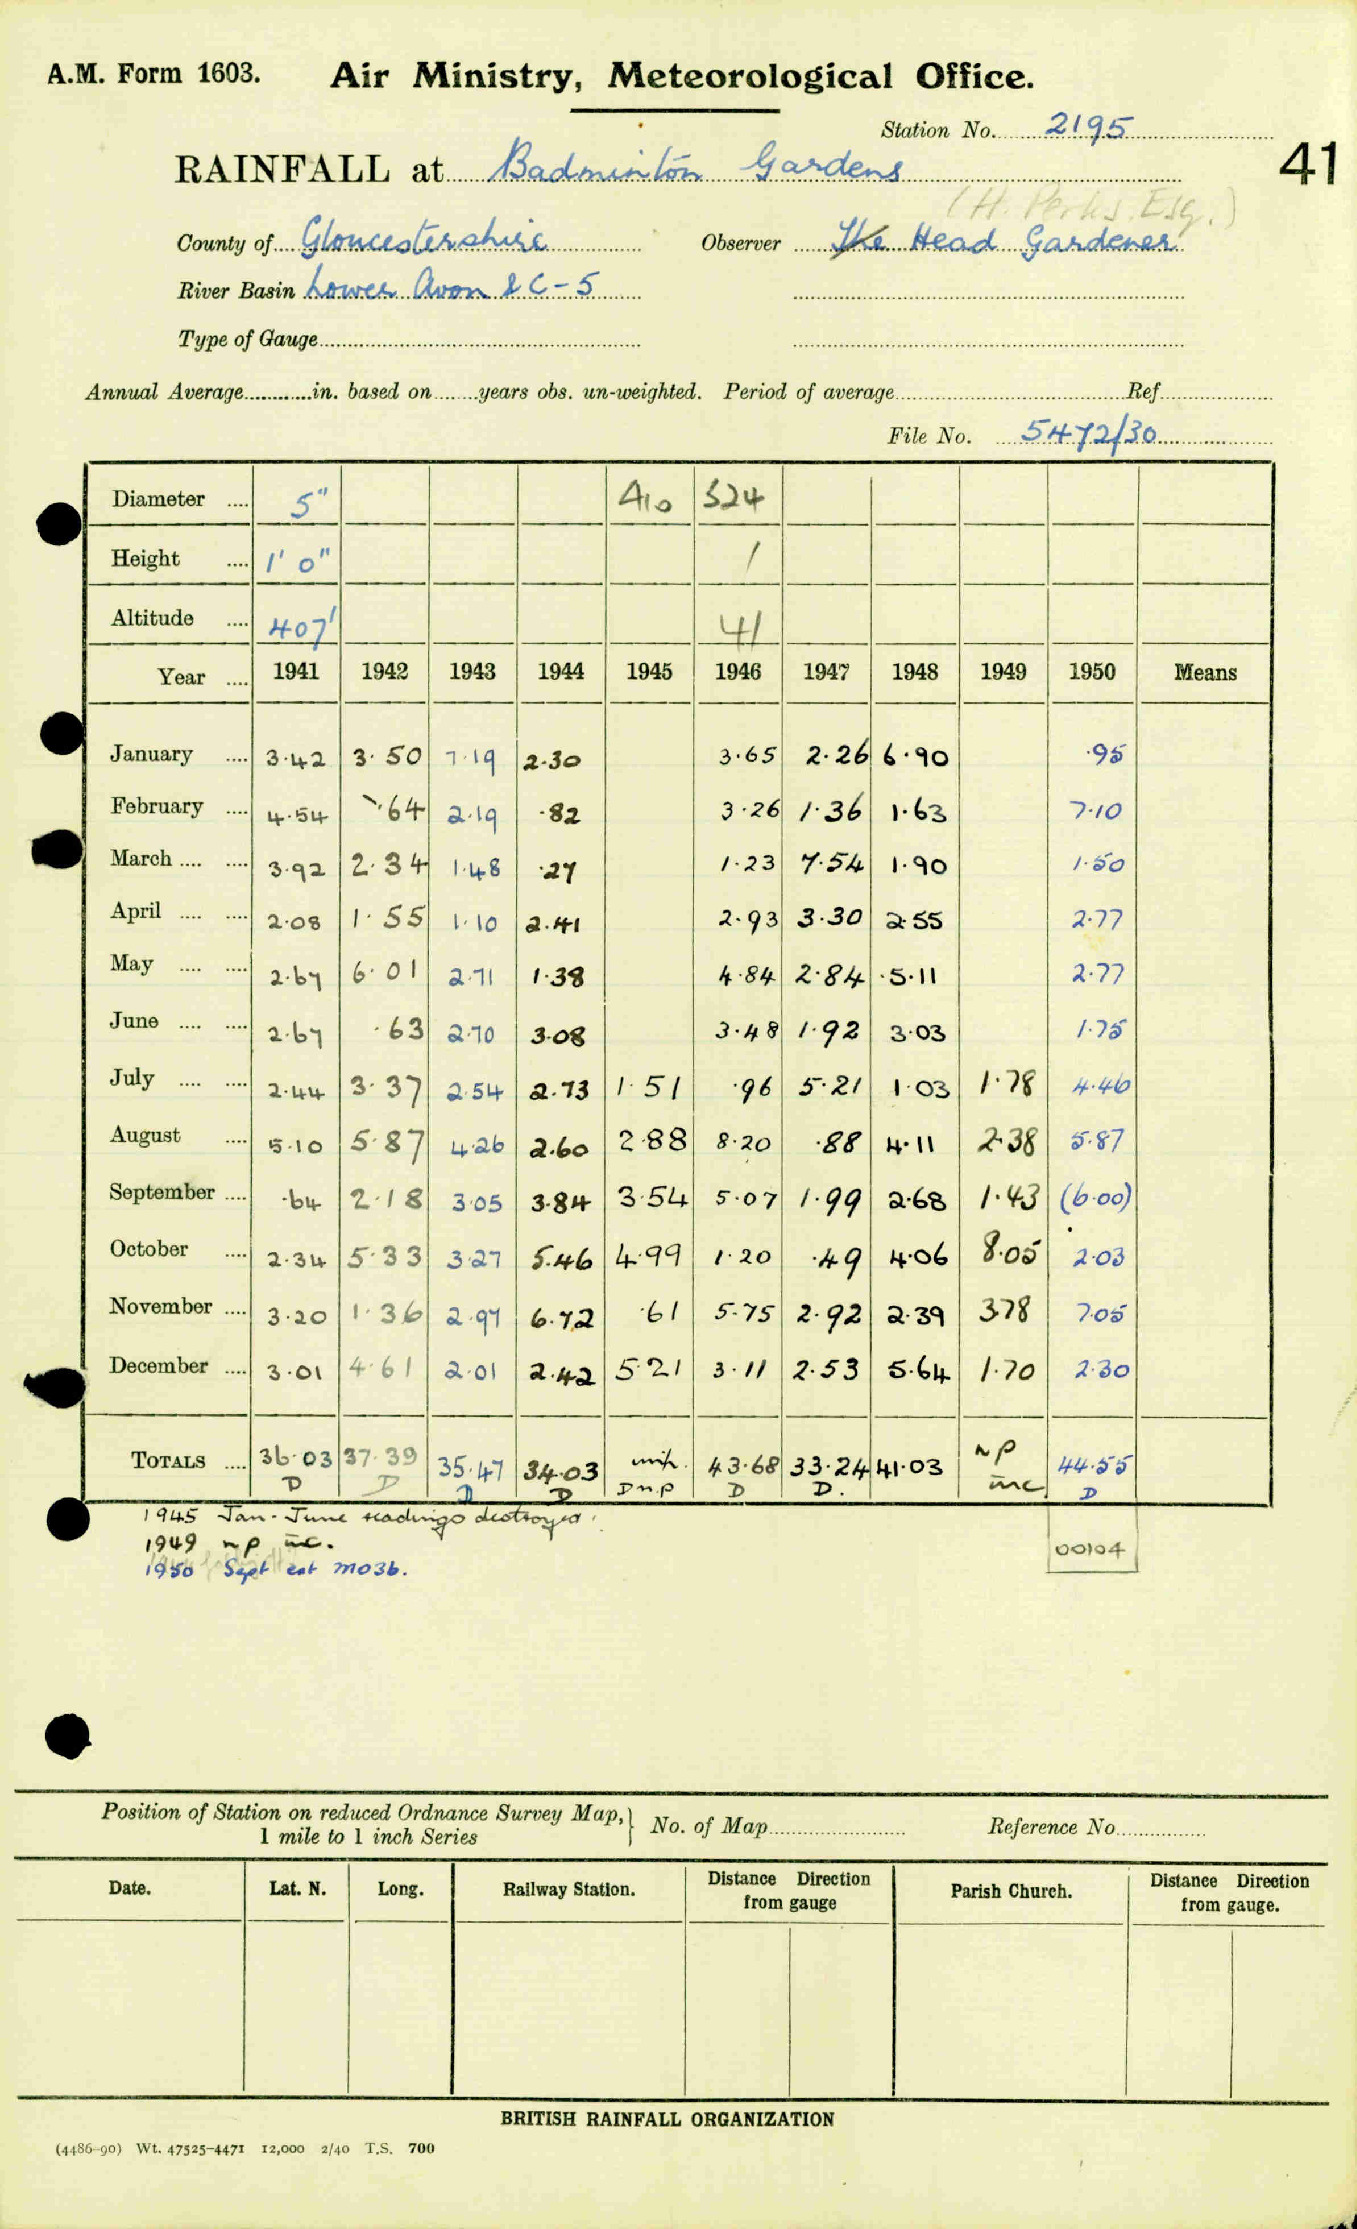 A.M. Form 1603. Air Ministry, Meteorological Office.
Station No. 2195
41
RAINFALL at Badminton Gardens
(H. Perks. Esq.)
County of Gloucestershire Observer The Head Gardener
River Basin Lower Avon & C-5
Type of Gauge
Annual Average in. based on years obs. un-weighted. Period of average Ref.
File No. 5472/30
Diameter .... 5" A10 324
Height .... 1' 0" 1
Altitude .... 407' 41
Year .... 1941 1942 1943 1944 1945 1946 1947 1948 1949 1950 Means
January .... 3·42 3·50 7·19 2·30 3·65 2·26 6·90 ·95
February .... 4·54 ·64 2·19 ·82 3·26 1·36 1·63 7·10
March .... .... 3·92 2·34 1·48 ·27 1·23 7·54 1·90 1·50
April .... .... 2·08 1·55 1·10 2·41 2·93 3·30 2·55 2·77
May .... .... 2·67 6·01 2·71 1·38 4·84 2·84 5·11 2·77
June .... .... 2·67 ·63 2·70 3·08 3·48 1·92 3·03 1·75
July .... .... 2·44 3·37 2·54 2·73 1·51 ·96 5·21 1·03 1·78 4·46
August .... 5·10 5·87 4·26 2·60 2·88 8·20 ·88 4·11 2·38 5·87
September .... ·64 2·18 3·05 3·84 3·54 5·07 1·99 2·68 1·43 (6·00)
October .... 2·34 5·33 3·27 5·46 4·99 1·20 ·49 4·06 8·05 2·03
November .... 3·20 1·36 2·97 6·72 ·61 5·75 2·92 2·39 3·78 7·05
December .... 3·01 4·61 2·01 2·42 5·21 3·11 2·53 5·64 1·70 2·30
TOTALS .... 36·03 37·39 35·47 34·03 43·68 33·24 41·03 np 44·55
D D D D D n.p D D. inc D
1945 Jan - June readings destroyed.
1949 np inc.
00104
1950 Sept est M03b.
Position of Station on reduced Ordnance Survey Map,} No. of Map Reference No.
1 mile to 1 inch Series
Date. Lat. N. Long. Railway Station. Distance Direction from gauge Parish Church. Distance Direction from gauge.
BRITISH RAINFALL ORGANIZATION
(4486-90) Wt. 47525-4471 12,000 2/40 T.S. 700